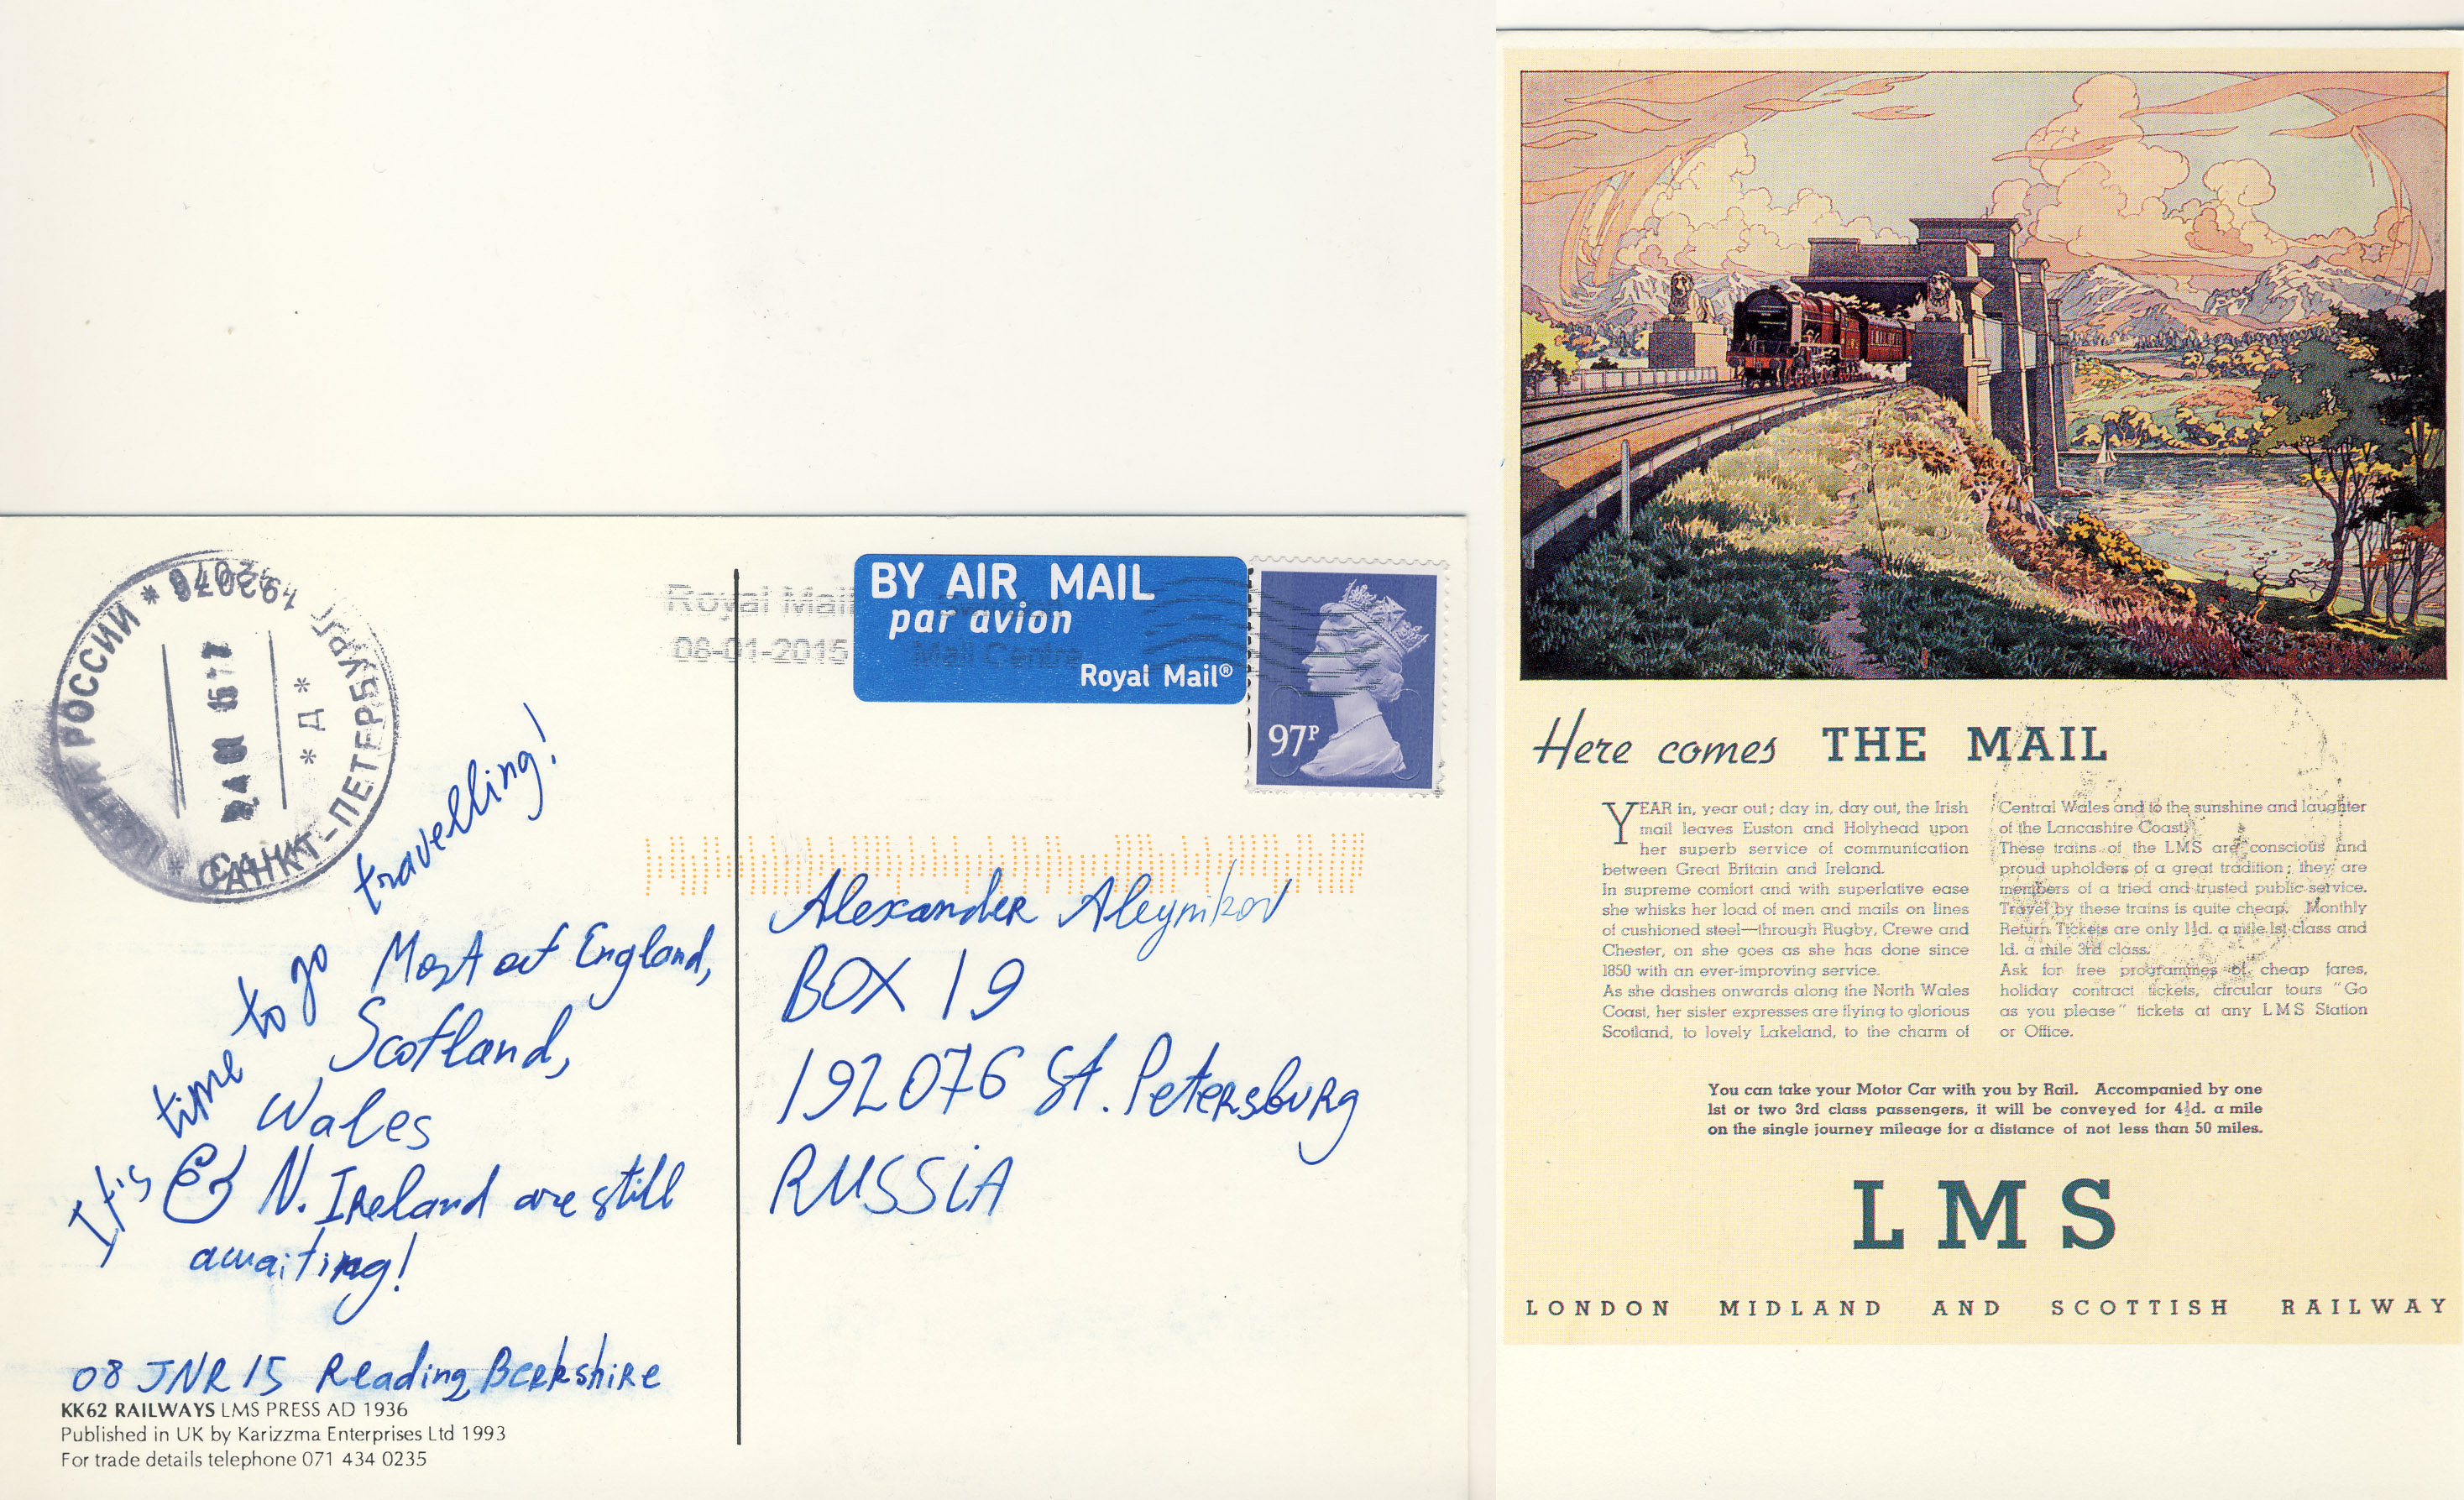 ПОЧТА РОССИИ * 192076
САНКТ-ПЕТЕРБУРГ
* Д *
24 01 15 17
Royal Mail
08-01-2015
Mail Centre
BY AIR MAIL
par avion
Royal Mail®
97P
It's time to go travelling!
Most of England,
Scotland,
Wales
& N. Ireland are still
awaiting!
08 JNR 15 Reading, Berkshire
KK62 RAILWAYS LMS PRESS AD 1936
Published in UK by Karizzma Enterprises Ltd 1993
For trade details telephone 071 434 0235
Alexander Aleynikov
BOX 19
192076 St. Petersburg
RUSSIA
Here comes THE MAIL
YEAR in, year out; day in, day out, the Irish
mail leaves Euston and Holyhead upon
her superb service of communication
between Great Britain and Ireland.
In supreme comfort and with superlative ease
she whisks her load of men and mails on lines
of cushioned steel—through Rugby, Crewe and
Chester, on she goes as she has done since
1850 with an ever-improving service.
As she dashes onwards along the North Wales
Coast, her sister expresses are flying to glorious
Scotland, to lovely Lakeland, to the charm of
Central Wales and to the sunshine and laughter
of the Lancashire Coast.
These trains of the LMS are conscious and
proud upholders of a great tradition; they are
members of a tried and trusted public service.
Travel by these trains is quite cheap. Monthly
Return Tickets are only 1½d. a mile 1st class and
1d. a mile 3rd class.
Ask for free programmes of cheap fares,
holiday contract tickets, circular tours "Go
as you please" tickets at any LMS Station
or Office.
You can take your Motor Car with you by Rail. Accompanied by one
1st or two 3rd class passengers, it will be conveyed for 4½d. a mile
on the single journey mileage for a distance of not less than 50 miles.
LMS
LONDON MIDLAND AND SCOTTISH RAILWAY